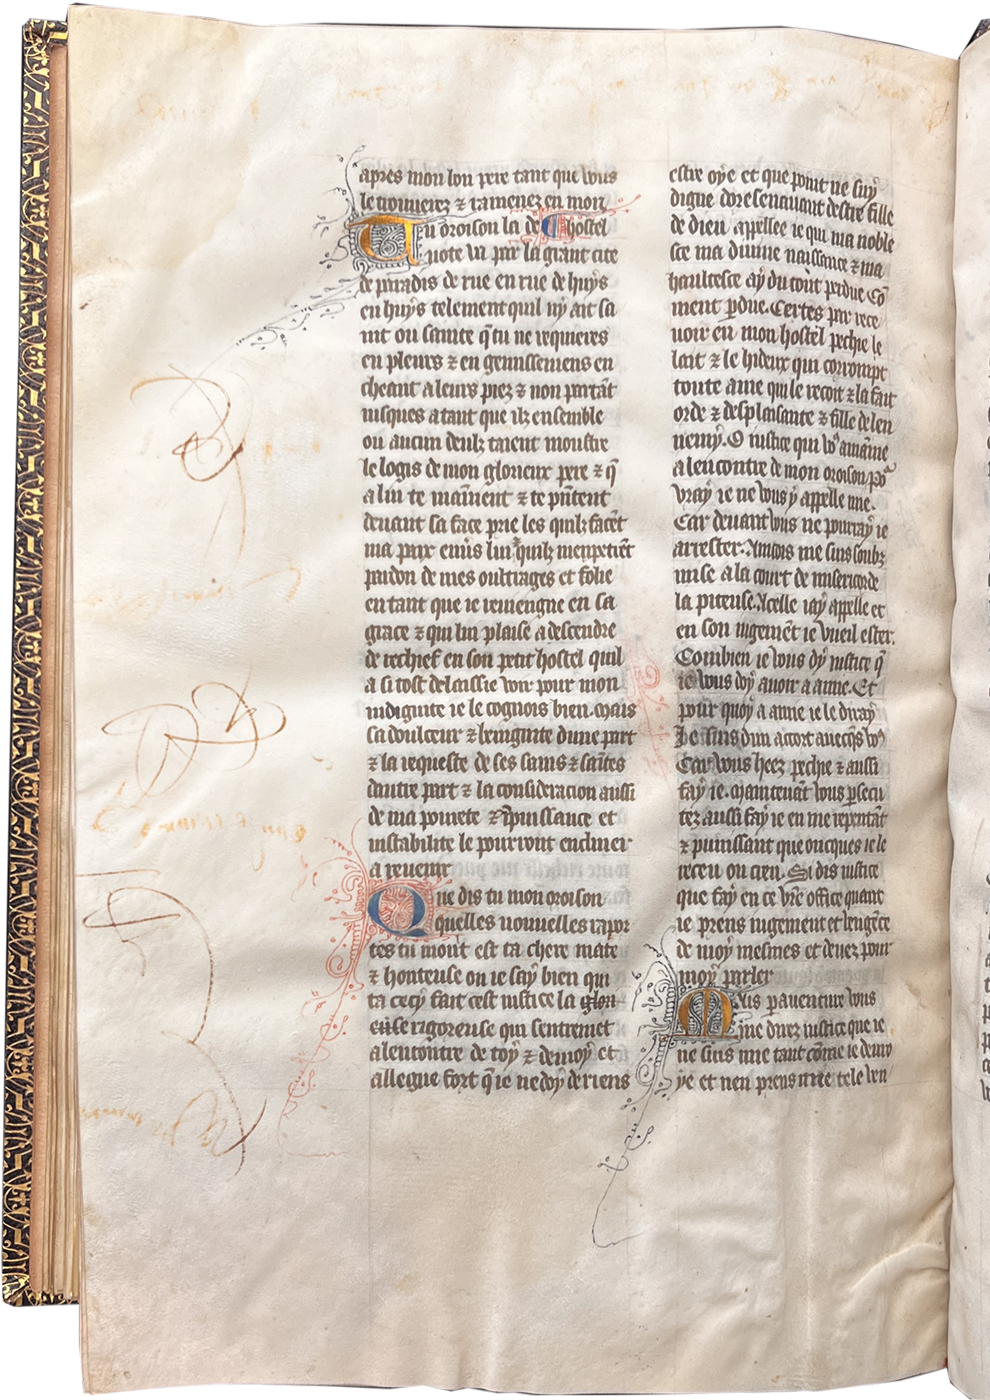 apres mon bon pere tant que vous
le trouuerez ⁊ ramenez en mon
hostel
Tu oroison la de
uote va par la grant cite
de paradis de rue en rue de huys
en huys telement quil ny ait sa
int ou sainte q̄ tu ne requieres
en pleurs ⁊ en gemissemens en
cheant a leurs piez ⁊ non partāt
iusques a tant que ilz ensemble
ou aucun deulz taient moustre
le logis de mon glorieux pere ⁊ q̄
a lui te mainnent ⁊ te pn̄tent
deuant sa face prie les quilz facēt
ma paix enuers lui quilz menpetrēt
pardon de mes oultrages et folie
en tant que ie reuiengne en sa
grace ⁊ qui lui plaise a descendre
de rechief en son petit hostel quil
a si tost delaissie voir pour mon
indignite ie le cognois bien. mais
sa doulceur ⁊ benignite dune part
⁊ la requeste de ses sains ⁊ saītes
dautre part ⁊ la consideracion aussi
de ma pourete ⁊ īpuissance et
instabilite le pourront encliner
a reuenir
Que dis tu mon oroison
quelles nouuelles rapor
tes tu mont est ta chere mate
⁊ honteuse on ie say bien qui
ta cecy fait cest iustice la glori
euse rigoreuse qui sentremet
a lencontre de toy ⁊ de moy et
allegue fort q̄ ie ne doy de riens
estre oye et que point ne suy
digne doresenauant destre fille
de dieu appellee ie qui ma noble
sce ma diuine naissance ⁊ ma
haultesce ay du tout perdue Cō
ment p̄due. Certes par rece
uoir en mon hostel pechie le
lait ⁊ le hideux qui corrompt
toute ame qui le recoit ⁊ la fait
orde ⁊ desplaisante ⁊ fille de len
nemy. O iustice qui voꝰ amaine
a lencontre de mon oroison po᷑
vray ie ne vous y appelle mie.
Car deuant vous ne pourray ie
arrester. Aincois me suis soubz
mise a la court de misericorde
la piteuse. Ycelle iay appelle et
en son iugemēt ie vueil ester.
Combien ie vous dy iustice q̄
ie vous doy auoir a amie. Et
pour quoy a amie ie le diray
Je suis dun accort auecq̄s voꝰ
Car vous heez pechie ⁊ aussi
fay ie. maintenāt vous ꝑsecu
tez aussi fay ie en me repentāt
⁊ puissant que oncques ie le
receu ou creu. Si dis iustice
que fay en ce vr̄e office quant
ie prens iugement et vengēce
de moy mesmes et deuez pour
moy parler
Mais par auenture vous
me direz iustice que ie
ne suis mie tant cōme ie deuro
ye et nen prens mie tele ven